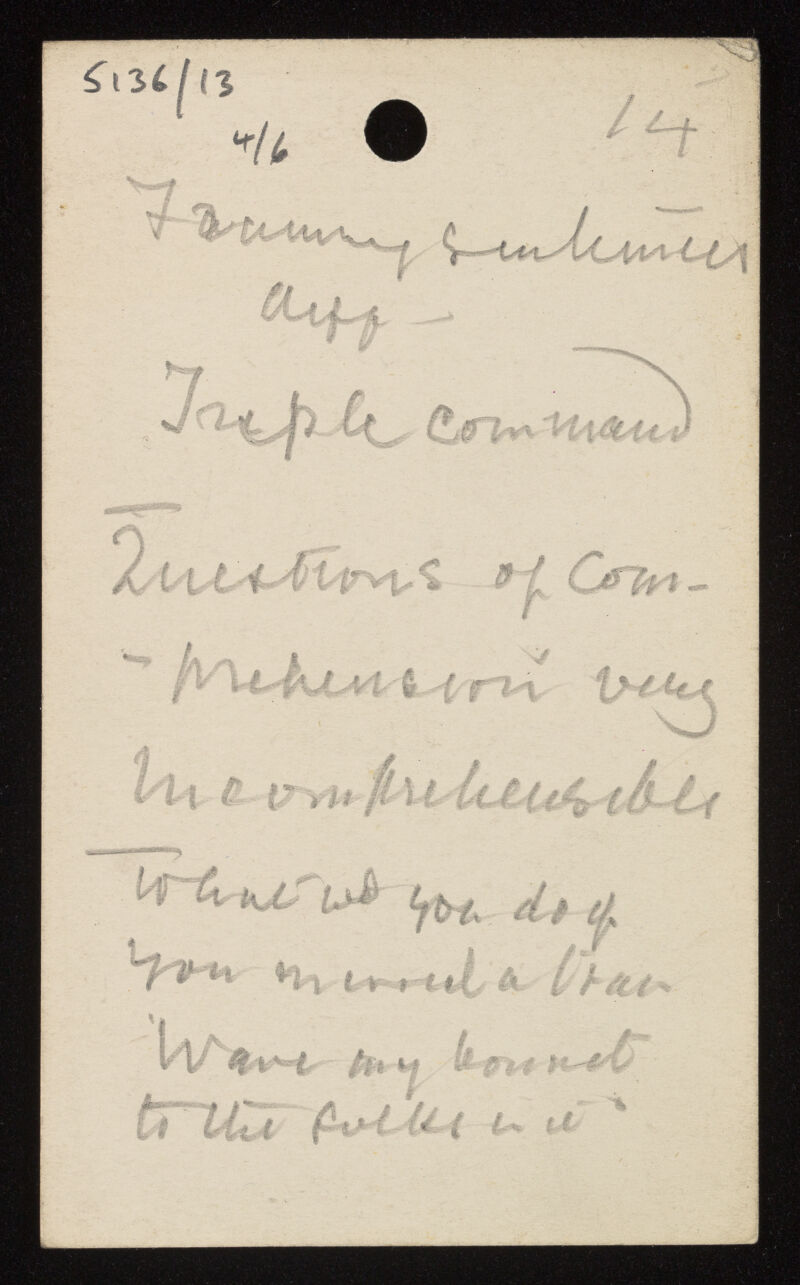 5136/13
4/6
14
Framing sentences
diff -
Triple command
Questions of Com-
- prehension very
Incomprehensible
What wd you do if
you missed a train
"Wave my bonnet
to the folks in it"